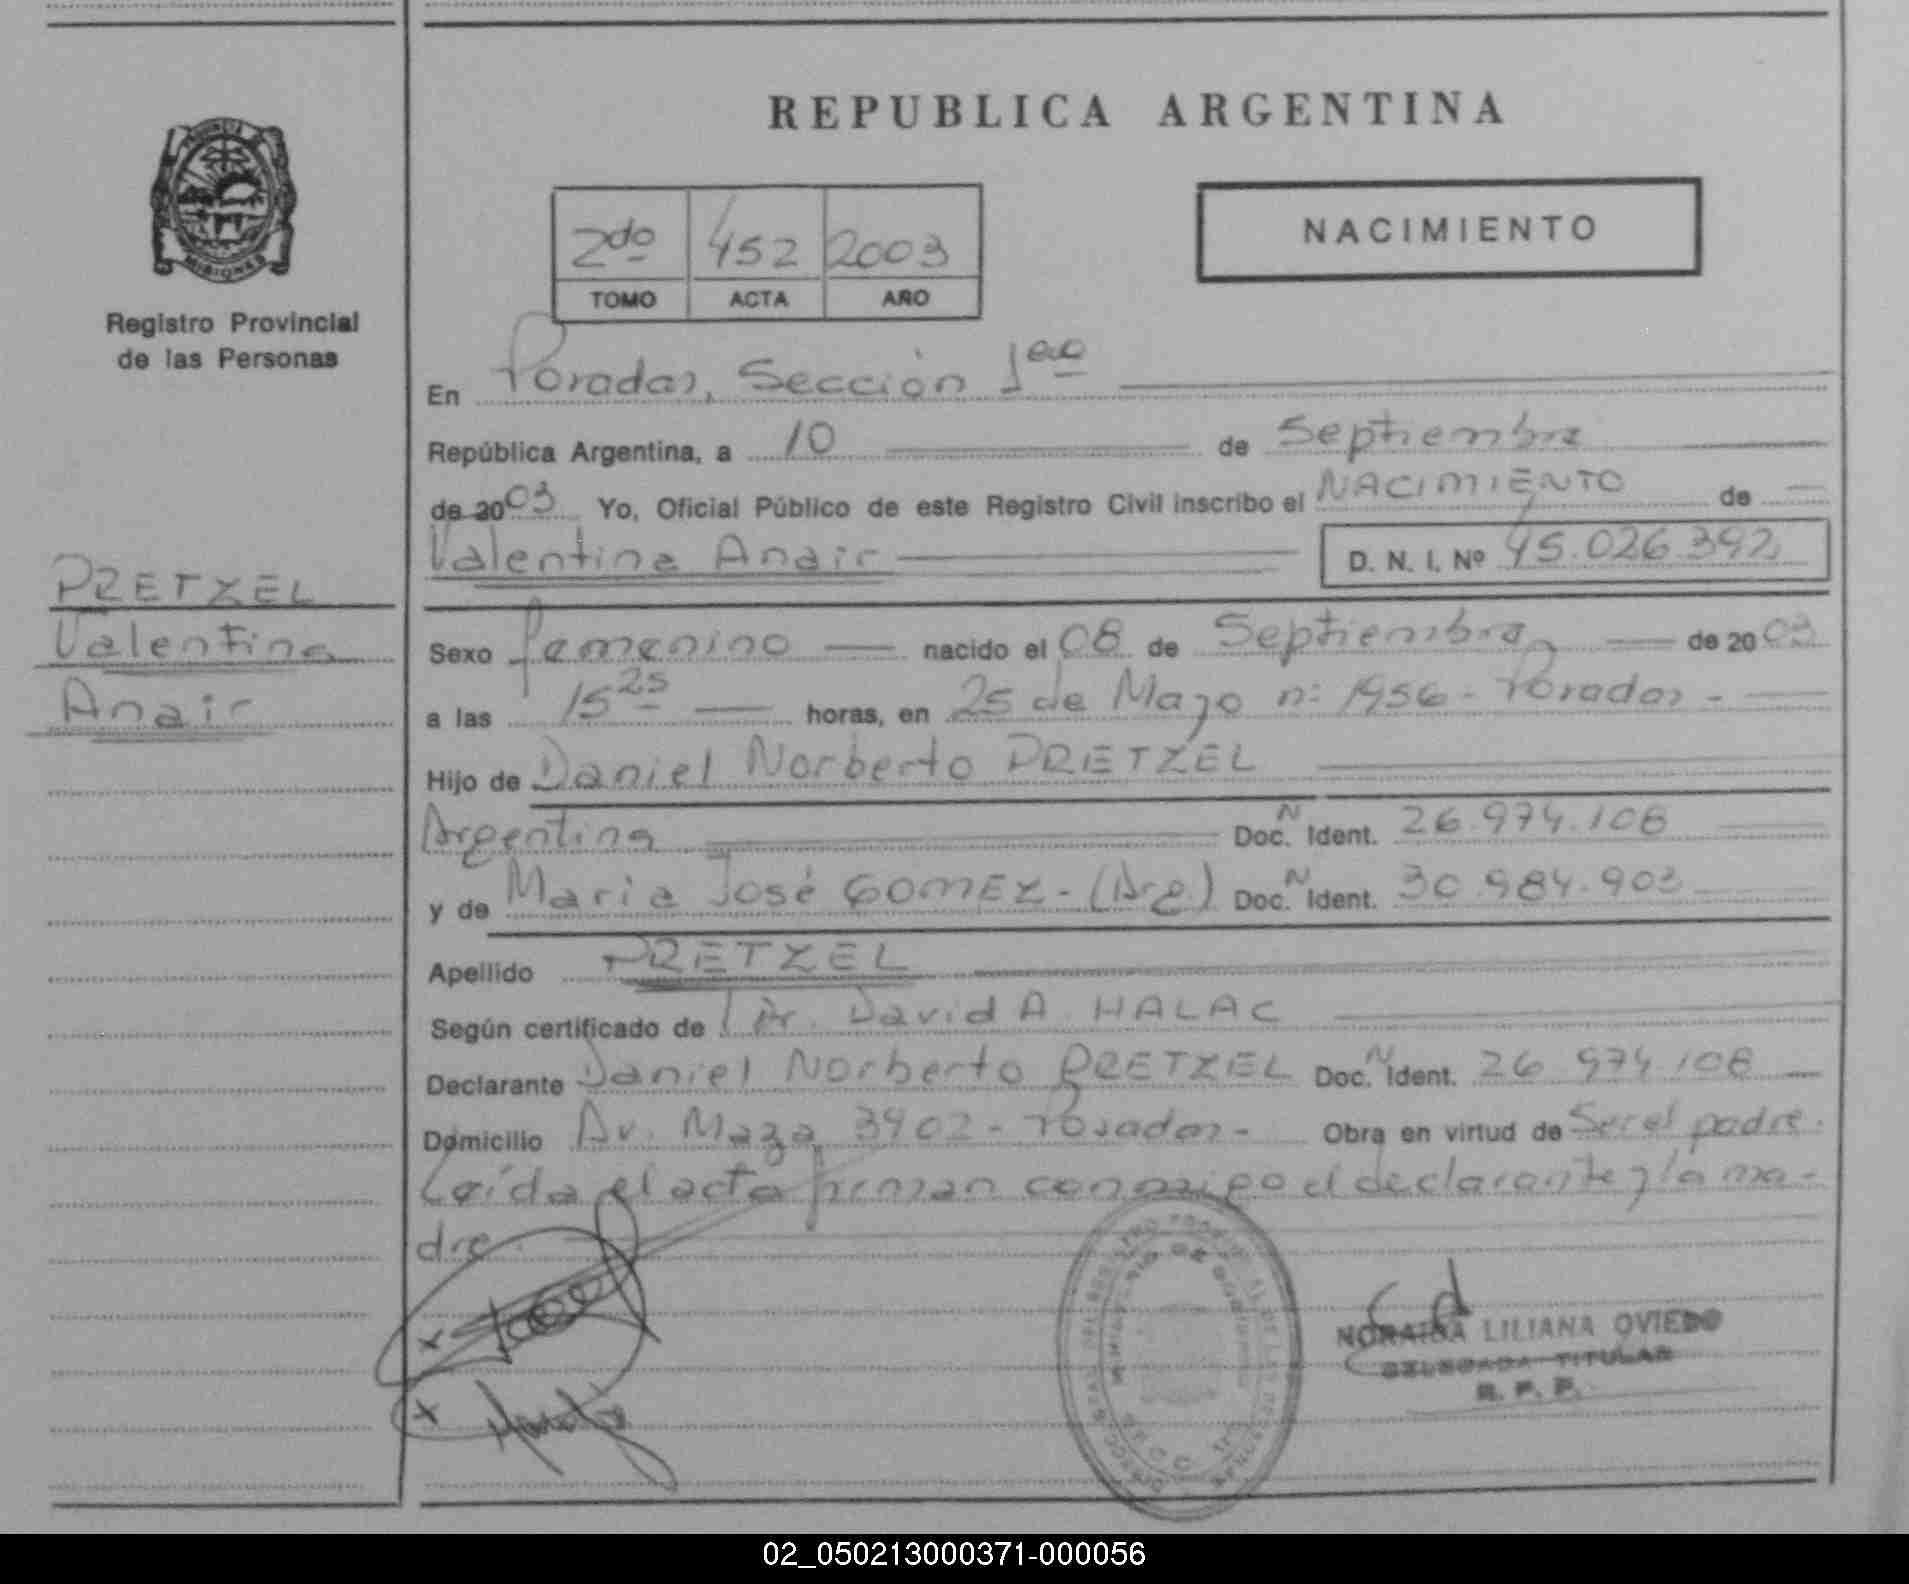 REPUBLICA ARGENTINA
NACIMIENTO
2do 452 2003
TOMO ACTA AÑO
MISIONES
Registro Provincial
de las Personas
En Posadas, Sección 1era
República Argentina, a 10 de Septiembre
de 2003 Yo, Oficial Público de este Registro Civil inscribo el NACIMIENTO de
Valentina Anair D. N. I. Nº 45.026.392
PRETZEL
Valentina
Anair
Sexo femenino nacido el 08 de Septiembre de 2003
a las 15 25 horas, en 25 de Mayo n: 1956 - Posadas -
Hijo de Daniel Norberto PRETZEL
Argentina Doc. N Ident. 26.974.108
y de Maria José GOMEZ - (Arg.) Doc. N Ident. 30.984.903
Apellido PRETZEL
Según certificado de Dr. David A. HALAC
Declarante Daniel Norberto PRETZEL Doc. N Ident. 26.974.108
Domicilio Av. Maza 3902 - Posadas - Obra en virtud de Ser el padre.
Leída el acta firman conmigo el declarante y la ma-
dre.
NORAIDA LILIANA OVIEDO
DELEGADA TITULAR
R. P. P.
02_050213000371-000056